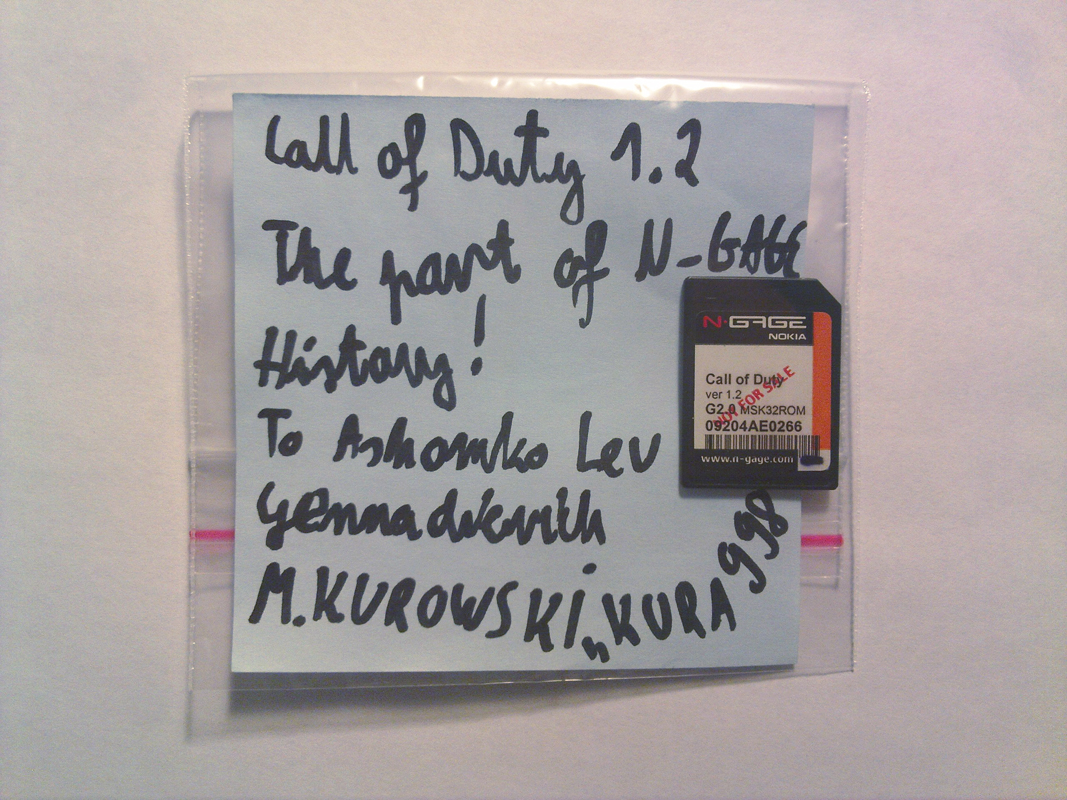 Call of Duty 1.2
The part of N-GAGE
History!
To Ashomko Lev
Gennadievich
M.KUROWSKI „KURA998
N·GAGE
NOKIA
Call of Duty
ver 1.2
NOT FOR SALE
G2.0 MSK32ROM
09204AE0266
www.n-gage.com